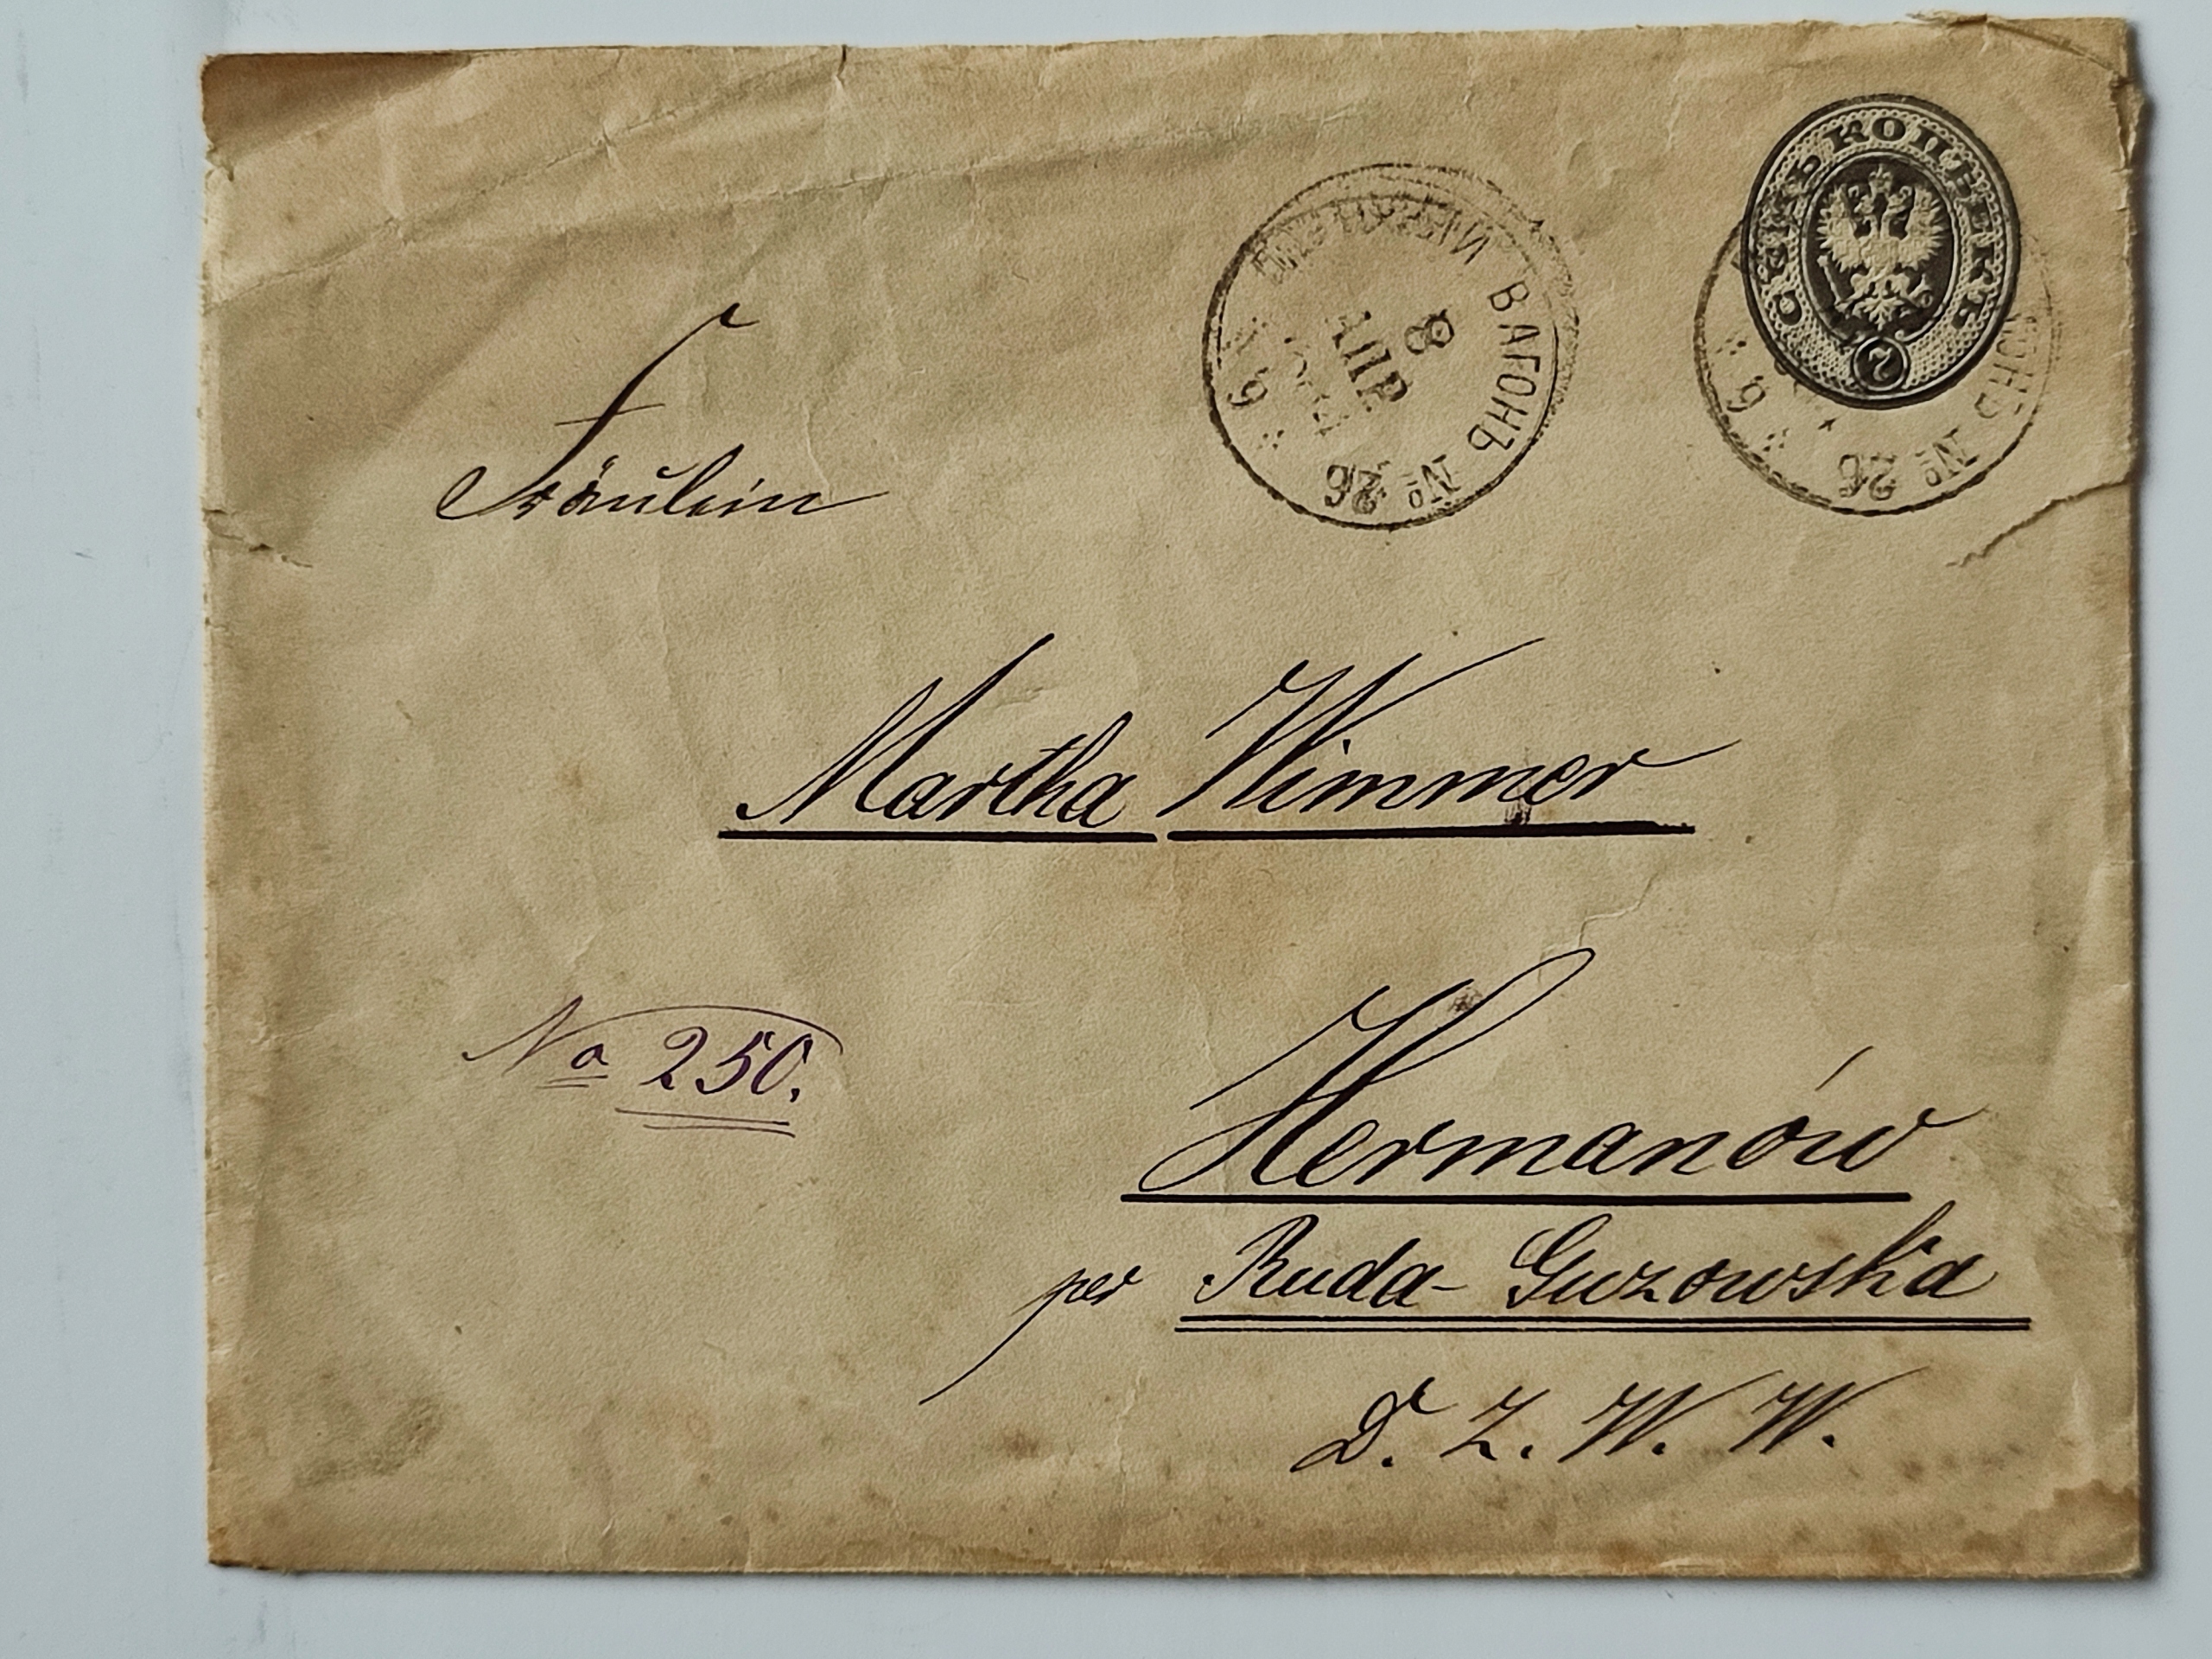 СЕМЬ КОПѢЕКЪ
7
ВАГОНЪ № 26
8
АПР
6
ГОНЪ № 26
6
Fräulein
Martha Wimmer
No 250.
Hermanów
per Ruda-Guzowska
D. Z. W. W.